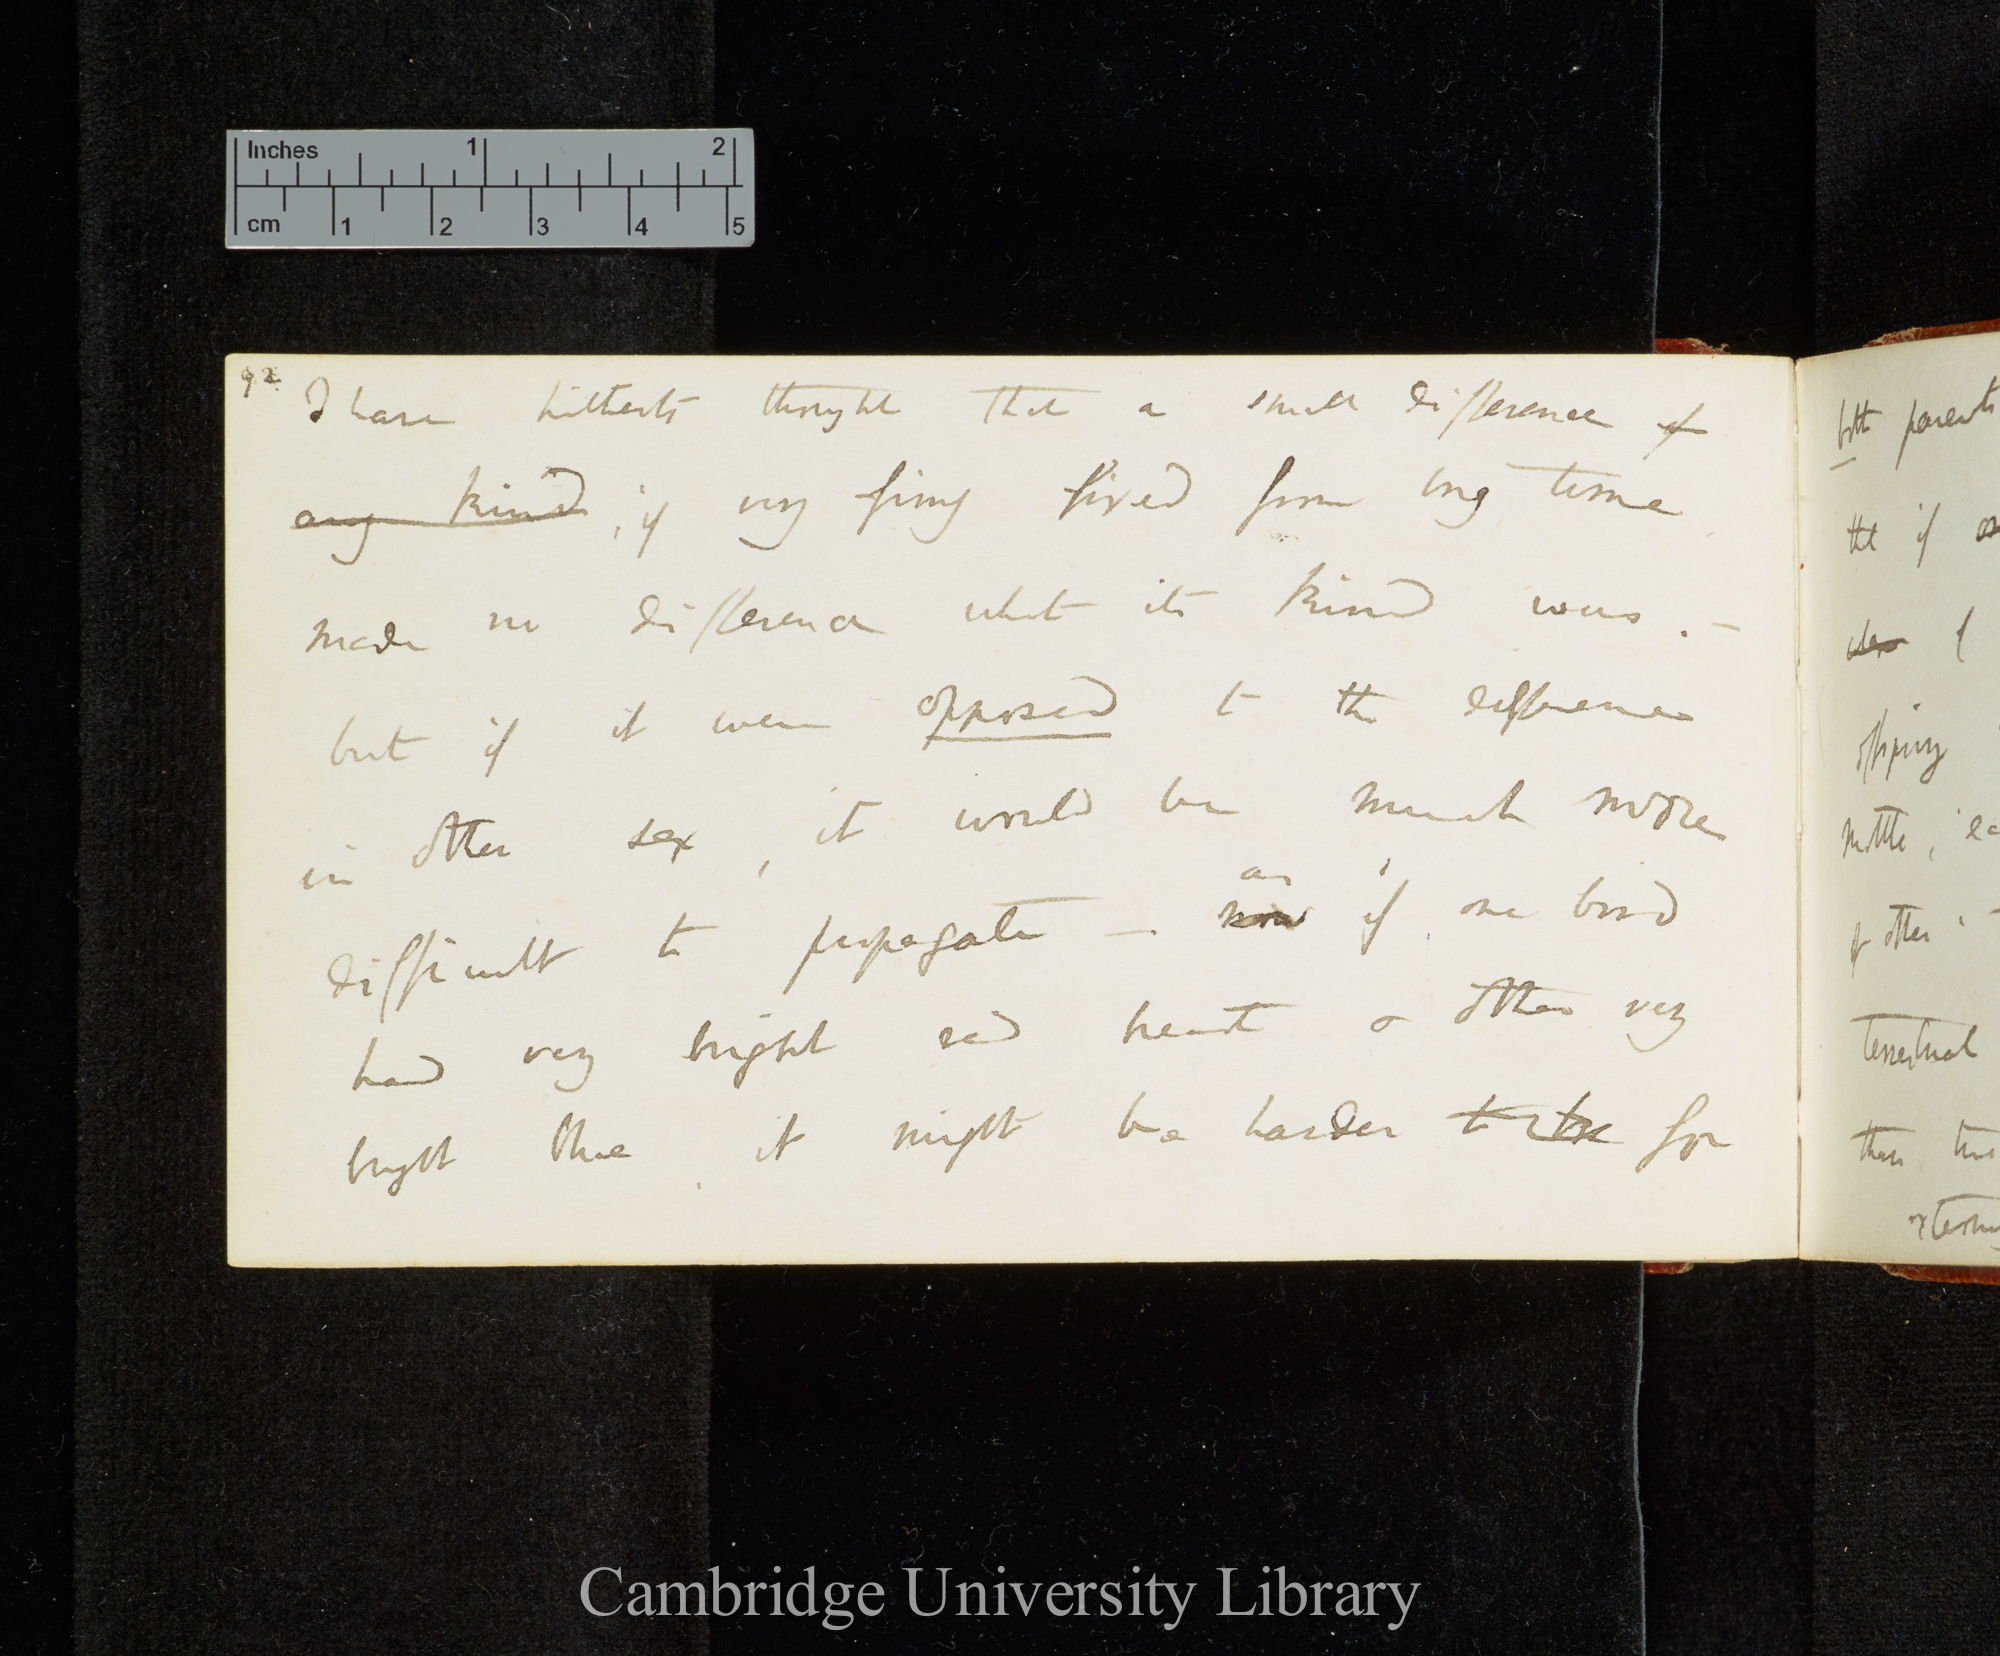 Inches 1 2
cm 1 2 3 4 5
92
I have hitherto thought that a small difference of
any kind, if very firmly fixed from long time
made no difference what its kind was. —
but if it were opposed to the difference
in other sex, it would be much more
as
difficult to propagate — now if one bird
had very bright red breast & other very
bright blue it might be harder to be for
both parents
the if
when
offspring
mother,
of other
terrestrial
than two
Cambridge University Library